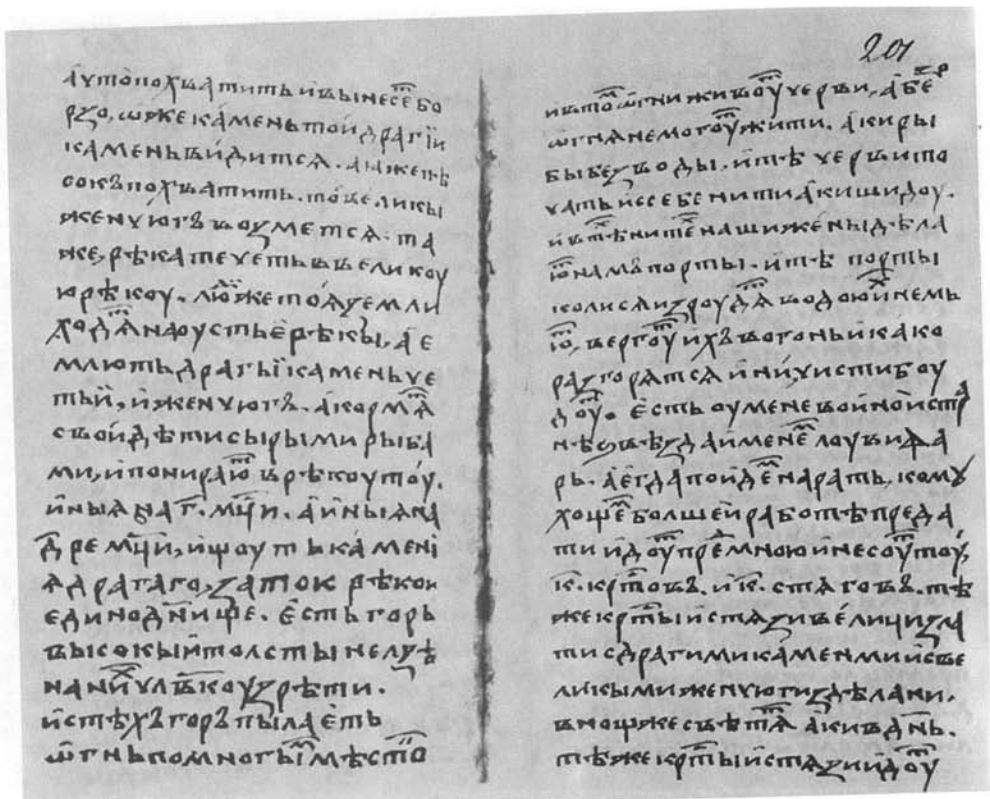 а҆ утопохватить и҆вынесе́ⷮ бо
рзо, ѡ҆же ка́мень той дра́гїй
ка́мень ви́дится. а҆ иже пѣ
сокъ похватить. то вели́кы
женчюгъ возметсѧ. та
же, рѣка течеть в великоу
ю рѣкоу. лю́дⷤїе тоѧ земли
хо́дѧⷮ на оустье́ рѣкы̀, а҆ е
млють драгы̀ї ка́мень че
тьй, и҆ женчюгъ. а҆ ко́рмѧⷮ
свой дѣти сырыми рыба
ми, и҆ понираюⷮ в рѣкоу тоу.
и҆ныѧ на г҃. мцⷭ҇и. а҆ и҆ныѧ на
д҃ ре мцⷭ҇и, и҆щоуть ка́мені
ѧ драгаго, за ток рѣкои
едино дн҃ище. є҆сть горы
высокый толсты нелзѣ
на ниⷯ чл҃вкоу зрѣти.
и҆ с тѣхъ горъ пыла́еть
ѡ҆гнь по многыⷨ мѣстоⷨ
201
и҆ в тоⷨ ѡ҆гни живоуⷮ черви, а҆ беⷥ
ѡ҆гнѧ не могоуⷮ жити. а҆ки ры
бы беⷥ воды. и҆ тѣ черви то
чать иⷥ себе нити аки шидоу.
и҆ в тѣⷯ нитеⷯ наши же́ны дѣла
юⷮ намъ порты. и҆ тѣ порты
коли сѧ изроудѧⷮ водою иⷯ не мы
юⷮ, вергоуⷮ и҆хъ в огонь и҆ како
разгорѧтсѧ и҆ни чисти боу
доуⷮ. є҆сть оу мене во иной страⷩ
нѣ ѕвѣзда и҆менеⷨ лоувиѧа
рь. а҆ е҆гда поидеⷨ на рать, комꙋ
хощеⷨ болшей работѣ преда
ти и҆доуⷮ преⷣ мною и҆ несоуⷮ тоу,
к҃. крⷭ҇товъ. и҆ к҃. стѧговъ. тѣ
же крⷭ҇ты и҆ стѧзи вели́ци зла
ти с драгими каменми и҆ с ве
ликыми женчюги здѣлани.
в нощи же свѣтѧⷮ аки в дн҃ь.
тѣ же крⷭ҇ты и҆ стѧзи идоуⷮ